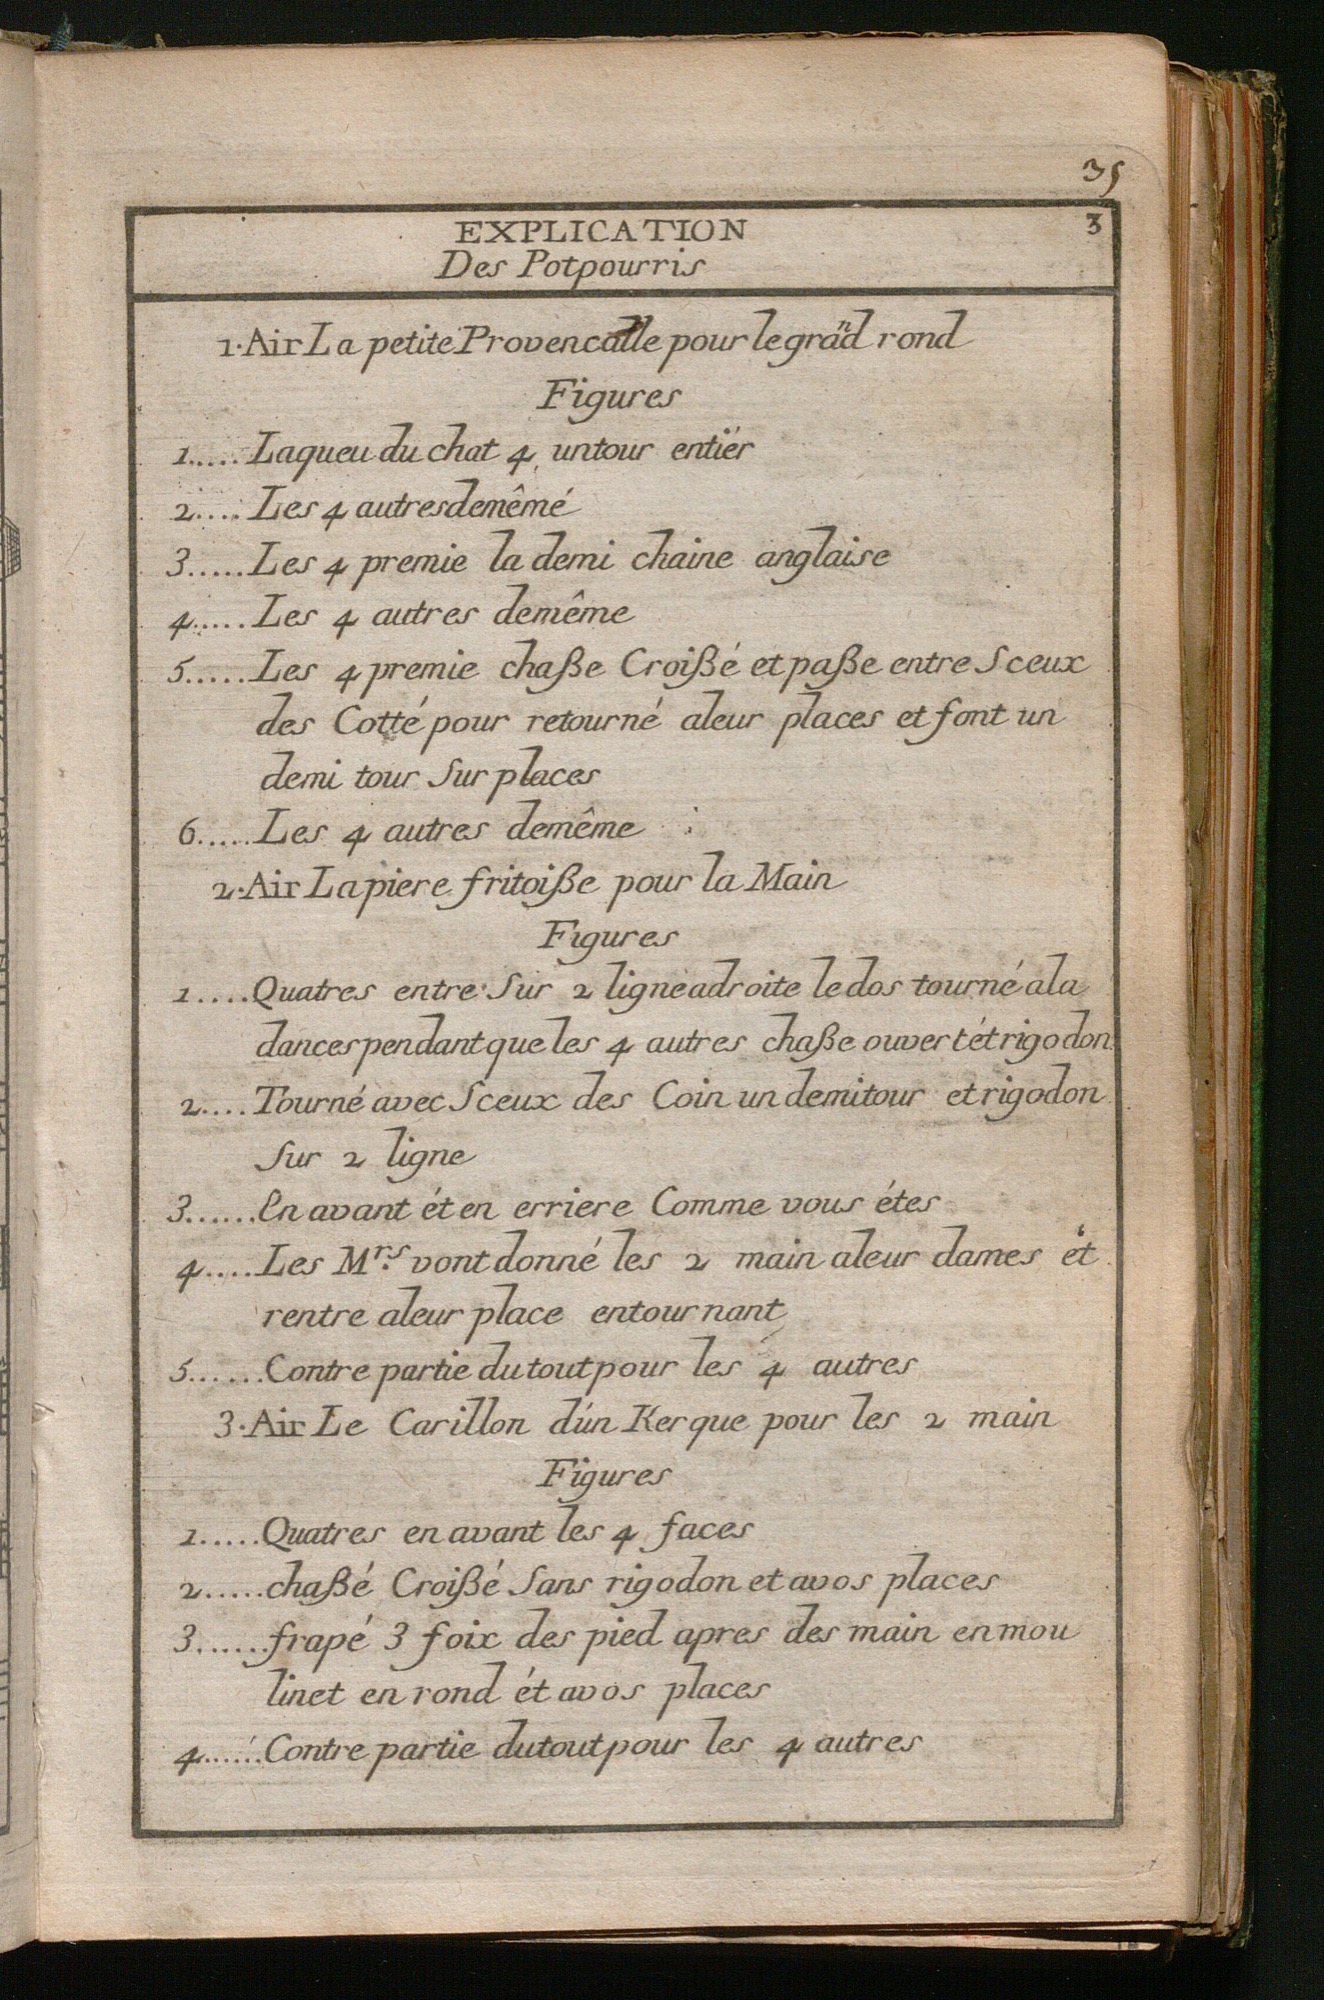 35
3
EXPLICATION
Des Potpourris
1. Air La petite Provencalle pour le grand rond
Figures
1..... Laqueu du chat 4 untour entiér
2.... Les 4 autres demêmé
3..... Les 4 premie la demi chaine anglaise
4..... Les 4 autres demême
5..... Les 4 premie chaße Croißé et paße entre Sceux
des Cotté pour retourné aleur places et font un
demi tour Sur places
6..... Les 4 autres demême
2. Air La piere fritoiße pour la Main
Figures
1.... Quatres entre Sur 2 ligne adroite le dos tourné ala
dances pendant que les 4 autres chaße ouvert ét rigodon
2.... Tourné avec Sceux des Coin un demitour et rigodon
Sur 2 ligne
3...... En avant ét en erriere Comme vous étes
4.... Les Mrs. vont donné les 2 main aleur dames ét
rentre aleur place entournant
5...... Contre partie dutout pour les 4 autres
3. Air Le Carillon dún Kerque pour les 2 main
Figures
1..... Quatres en avant les 4 faces
2..... chaßé Croißé Sans rigodon et avos places
3...... frapé 3 foix des pied apres des main en mou
linet en rond ét avos places
4...... Contre partie dutout pour les 4 autres